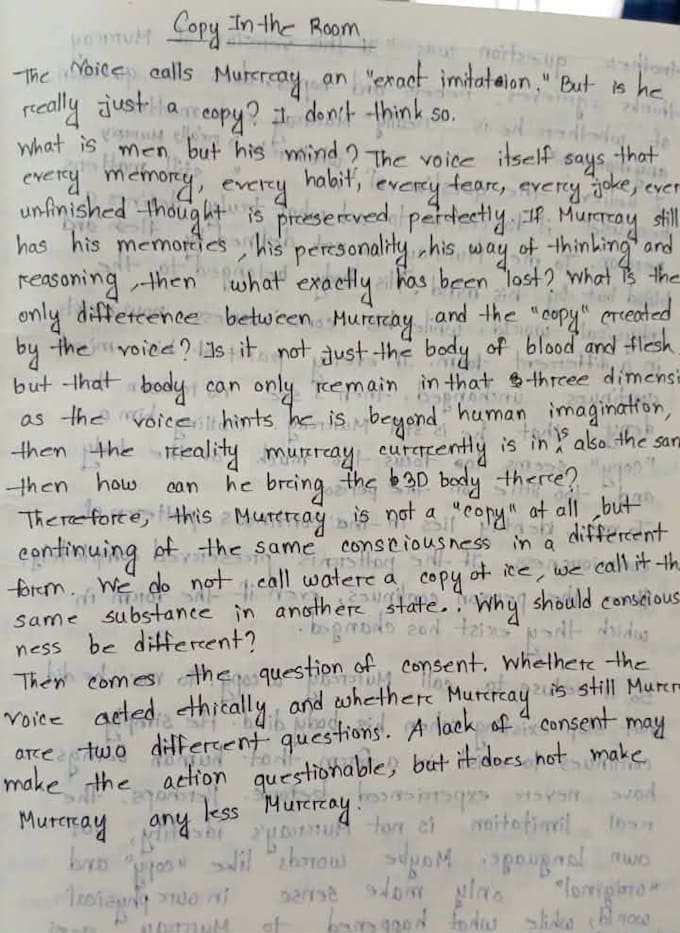 Copy In the Room
The Voice calls Murray an "exact imitation." But is he
really just a copy? I don't think so.
What is men but his mind? The voice itself says that
every memory, every habit, every fear, every joke, ever
unfinished thought is preserved perfectly. If Murray still
has his memories, his personality, his way of thinking and
reasoning, then what exactly has been lost? What is the
only difference between Murray and the "copy" created
by the voice? Is it not just the body of blood and flesh.
but that body can only remain in that three dimensi
as the voice hints he is beyond human imagination,
then the reality murray currently is in is also the sam
then how can he bring the 3D body there?
Therefore, this Murray is not a "copy" at all, but
continuing of the same consciousness in a different
form. We do not call water a copy of ice, we call it th
same substance in another state.. Why should conscious
ness be different?
Then comes the question of consent. Whether the
voice acted ethically and whether Murray is still Murr
are two different questions. A lack of consent may
make the action questionable, but it does not make
Murray any less Murray.